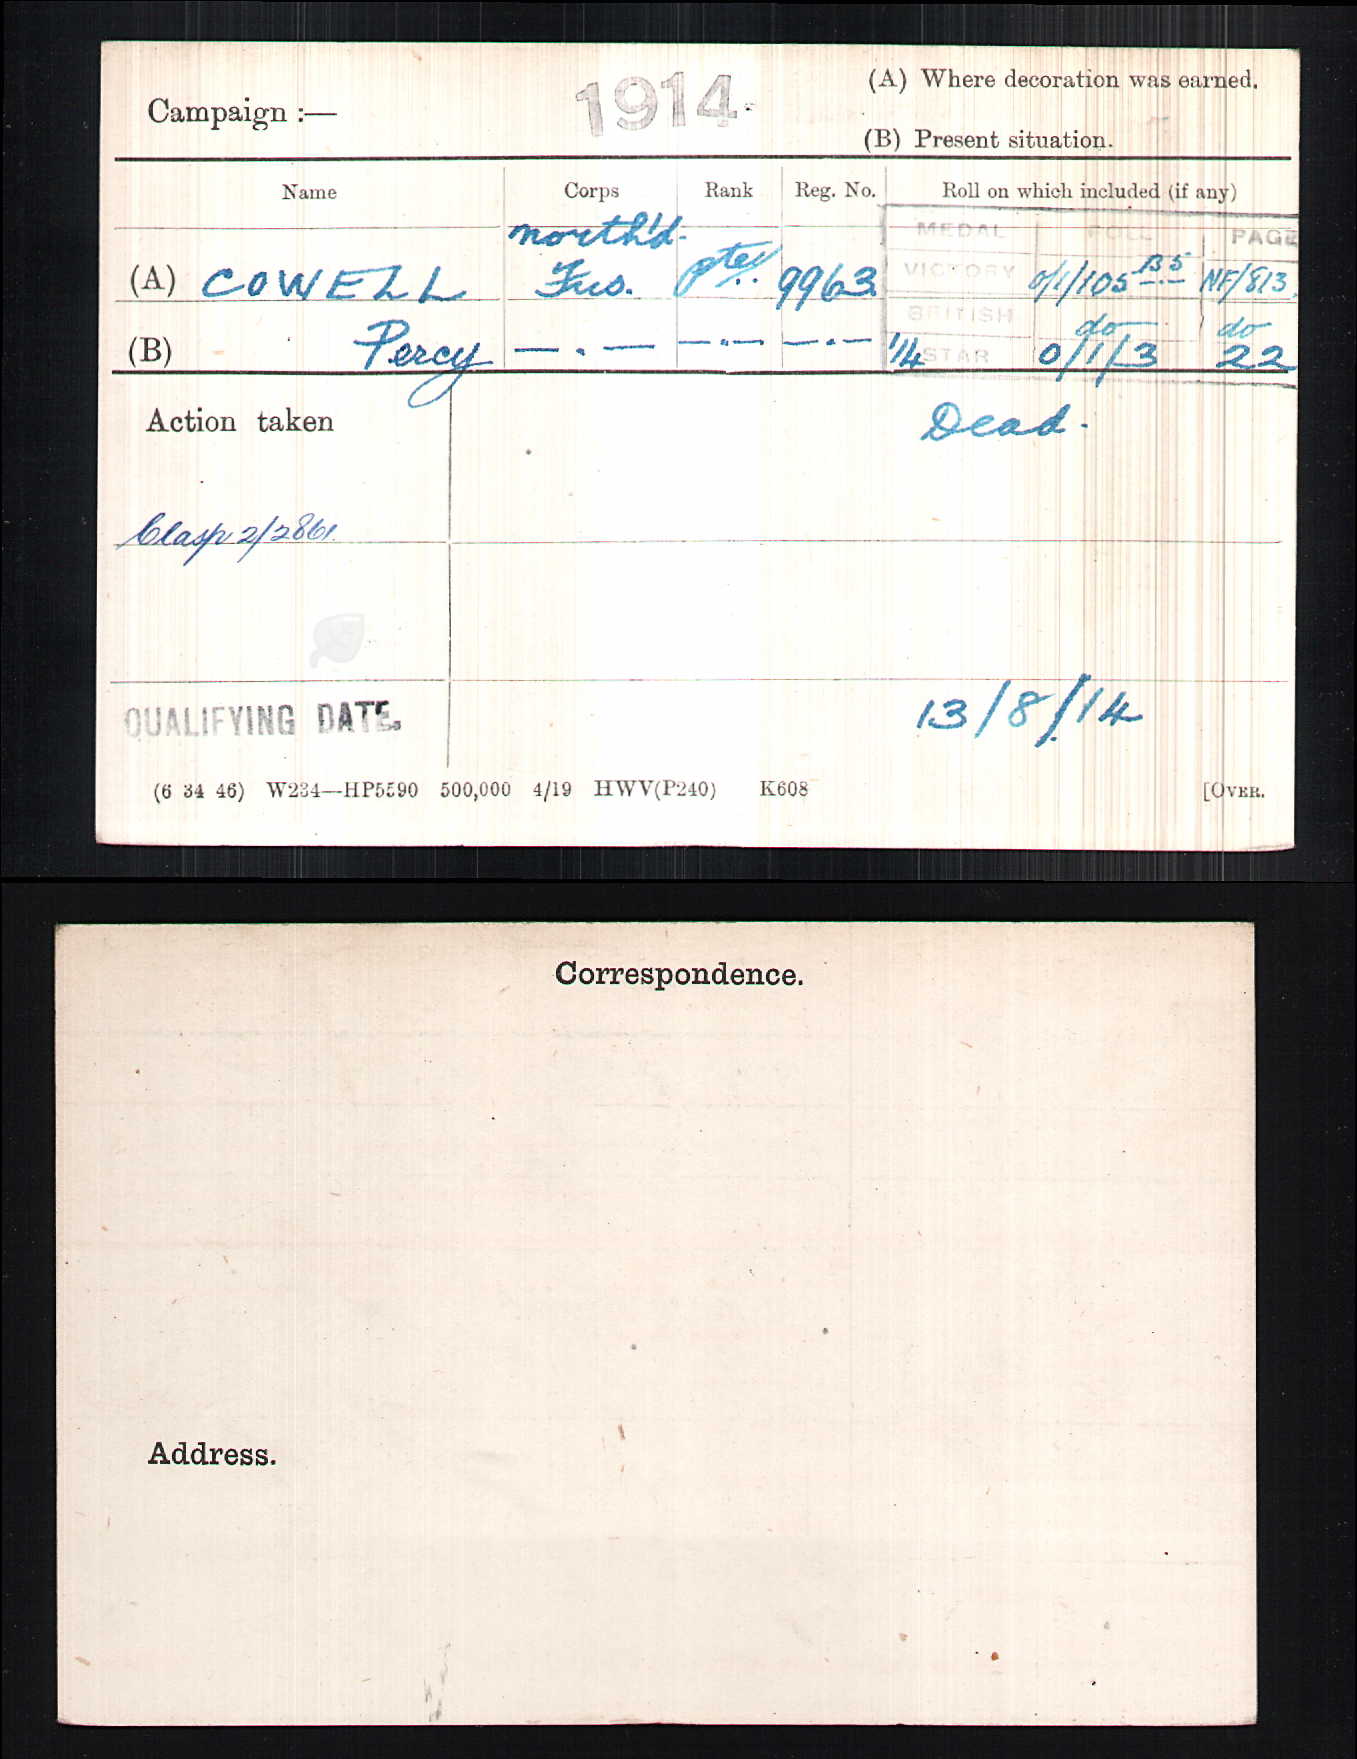 Campaign :— 1914. (A) Where decoration was earned.
(B) Present situation.
Name Corps Rank Reg. No. Roll on which included (if any)
MEDAL ROLL PAGE
(A) COWELL North'd. Fus. Pte. 9963 VICTORY 0/1/105 B5 NF/813.
BRITISH do do
(B) Percy — . — — . — — . — 1/4 STAR 0/1/3 22
Action taken Dead.
Clasp 2/2861.
QUALIFYING DATE. 13/8/14
(6 34 46) W234—HP5590 500,000 4/19 HWV(P240) K608 [OVER.
Correspondence.
Address.